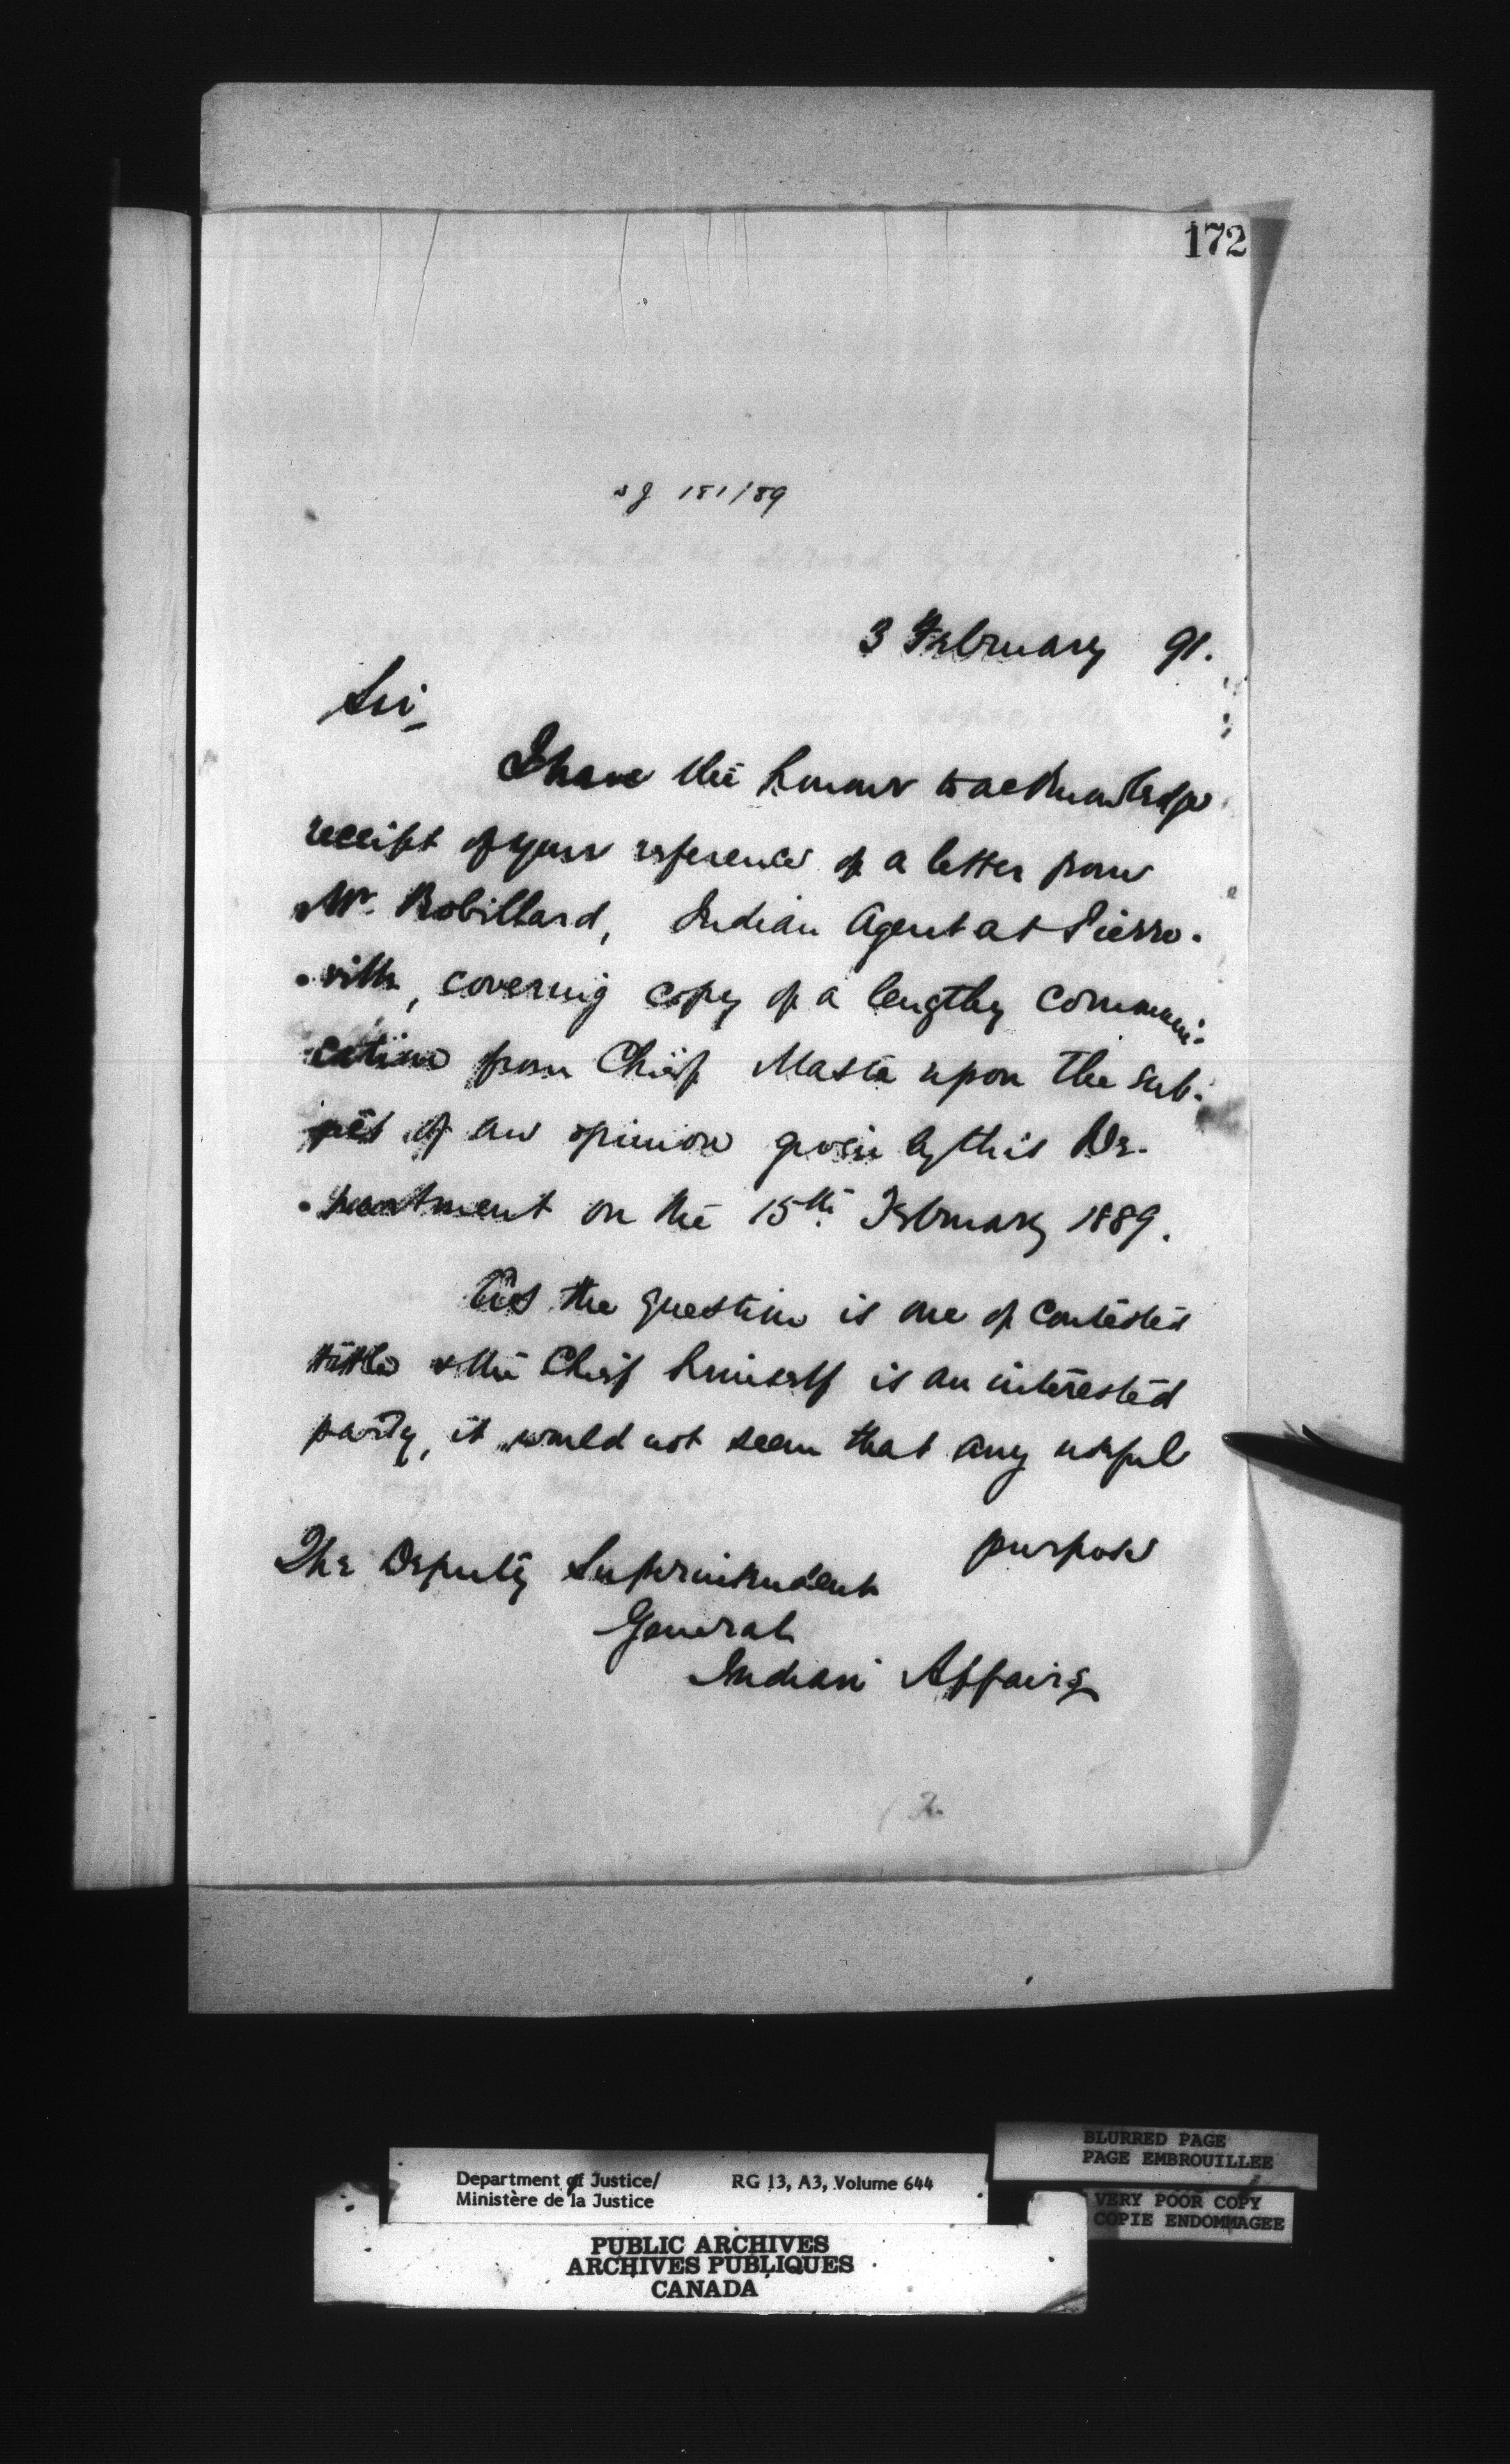 172
181/89
3 February 91.
Sir,
I have the honour to acknowledge
receipt of your reference of a letter from
Mr. Robillard, Indian Agent at Pierre-
-ville, covering copy of a lengthy communi-
cation from Chief Masta upon the sub-
ject of an opinion given by this De-
-partment on the 15th February 1889.
As the question is one of contested
title & the Chief himself is an interested
party, it would not seem that any useful
purpose
The Deputy Superintendent
General
Indian Affairs
BLURRED PAGE
PAGE EMBROUILLEE
Department of Justice/ RG 13, A3, Volume 644
Ministère de la Justice
VERY POOR COPY
COPIE ENDOMMAGEE
PUBLIC ARCHIVES
ARCHIVES PUBLIQUES
CANADA